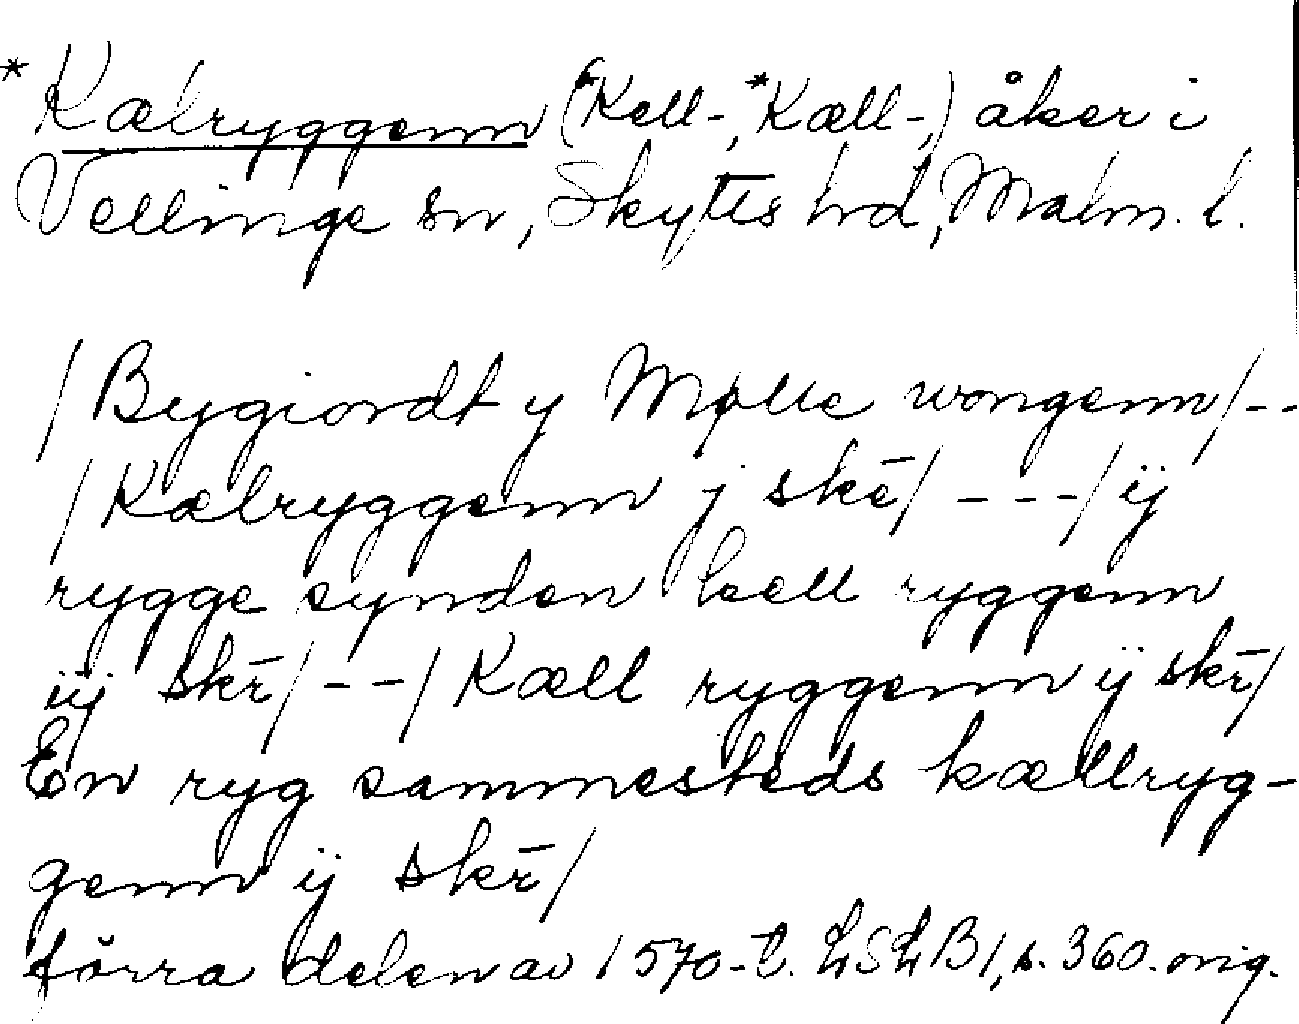 *Kælryggenn (*Kell-, *Kæll-,) åker i
Vellinge sn, Skytts hd, Malm. l.
/Bygiordt y Mølle wongenn/--
/Kælryggenn j skē/ ---/ij
rygge synden keell ryggenn
iij skr̄/--/Kæll ryggenn ij skr̄/
En ryg sammesteds kællryg-
genn ij skr̄/
förra delen av 1570-t. LSLB1, s. 360. orig.